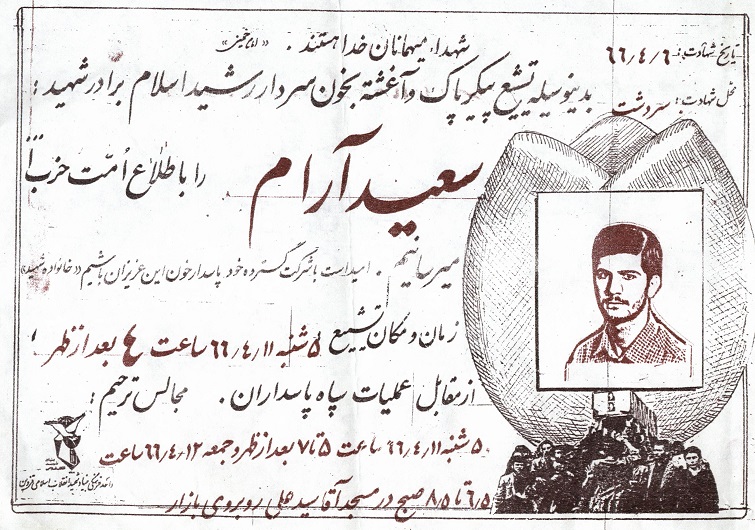 شهداء میهمانان خدا هستند . «امام خمینی»
تاریخ شهادت: ۶۶/۴/۶
محل شهادت: سردشت
بدینوسیله تشیع پیکر پاک و آغشته بخون سردار رشید اسلام برادر شهید:
سعید آرام
را باطلاع اُمّت حزب ا...
میرسانیم . امید است با شرکت گسترده خود پاسدار خون این عزیزان باشیم «خانواده شهید»
زمان و مکان تشییع ۵ شنبه ۶۶/۴/۱۱ ساعت ۴ بعد از ظهر،
از مقابل عملیات سپاه پاسداران . مجالس ترحیم:
۵ شنبه ۶۶/۴/۱۱ ساعت ۵ تا ۷ بعد از ظهر و جمعه ۶۶/۴/۱۲ ساعت
۶/۵ تا ۸/۵ صبح در مسجد آقا سید علی روبروی بازار
واحد فرهنگی بنیاد شهید انقلاب اسلامی قزوین